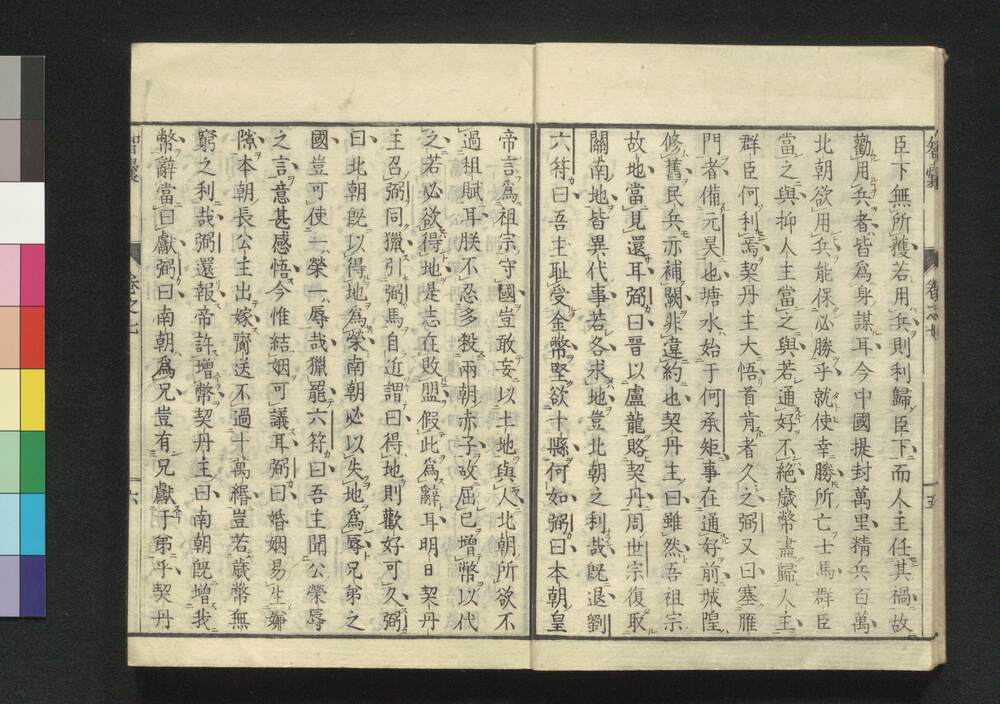 臣下無所獲若用兵則利歸臣下而人主任其禍故
勸用兵者皆爲身謀耳今中國提封萬里精兵百萬
北朝欲用兵能保必勝乎就使幸勝所亡士馬群臣
當之與抑人主當之與若通好不絕歲幣盡歸人主
群臣何利焉契丹主大悟首肯者久之弼又曰塞雁
門者備元昊也塘水始于何承矩事在通好前城隍
修舊民兵亦補闕非違約也契丹主曰雖然吾祖宗
故地當見還耳弼曰晉以盧龍賂契丹周世宗復取
關南地皆異代事若各求地豈北朝之利哉既退劉
六符曰吾主耻受金幣堅欲十縣何如弼曰本朝皇
帝言爲祖宗守國豈敢妄以土地與人北朝所欲不
過祖賦耳朕不忍多殺兩朝赤子故屈己增幣以代
之若必欲得地是志在敗盟假此爲辭耳明日契丹
主召弼同獵引弼馬自近謂曰得地則歡好可久弼
曰北朝既以得地爲榮南朝必以失地爲辱兄弟之
國豈可使一榮一辱哉獵罷六符曰吾主聞公榮辱
之言意甚感悟今惟結姻可議耳弼曰婚姻易生嫌
隙本朝長公主出嫁齎送不過十萬緡豈若歲幣無
窮之利哉弼還報帝許增幣契丹主曰南朝既增我
幣辭當曰獻弼曰南朝爲兄豈有兄獻于弟乎契丹